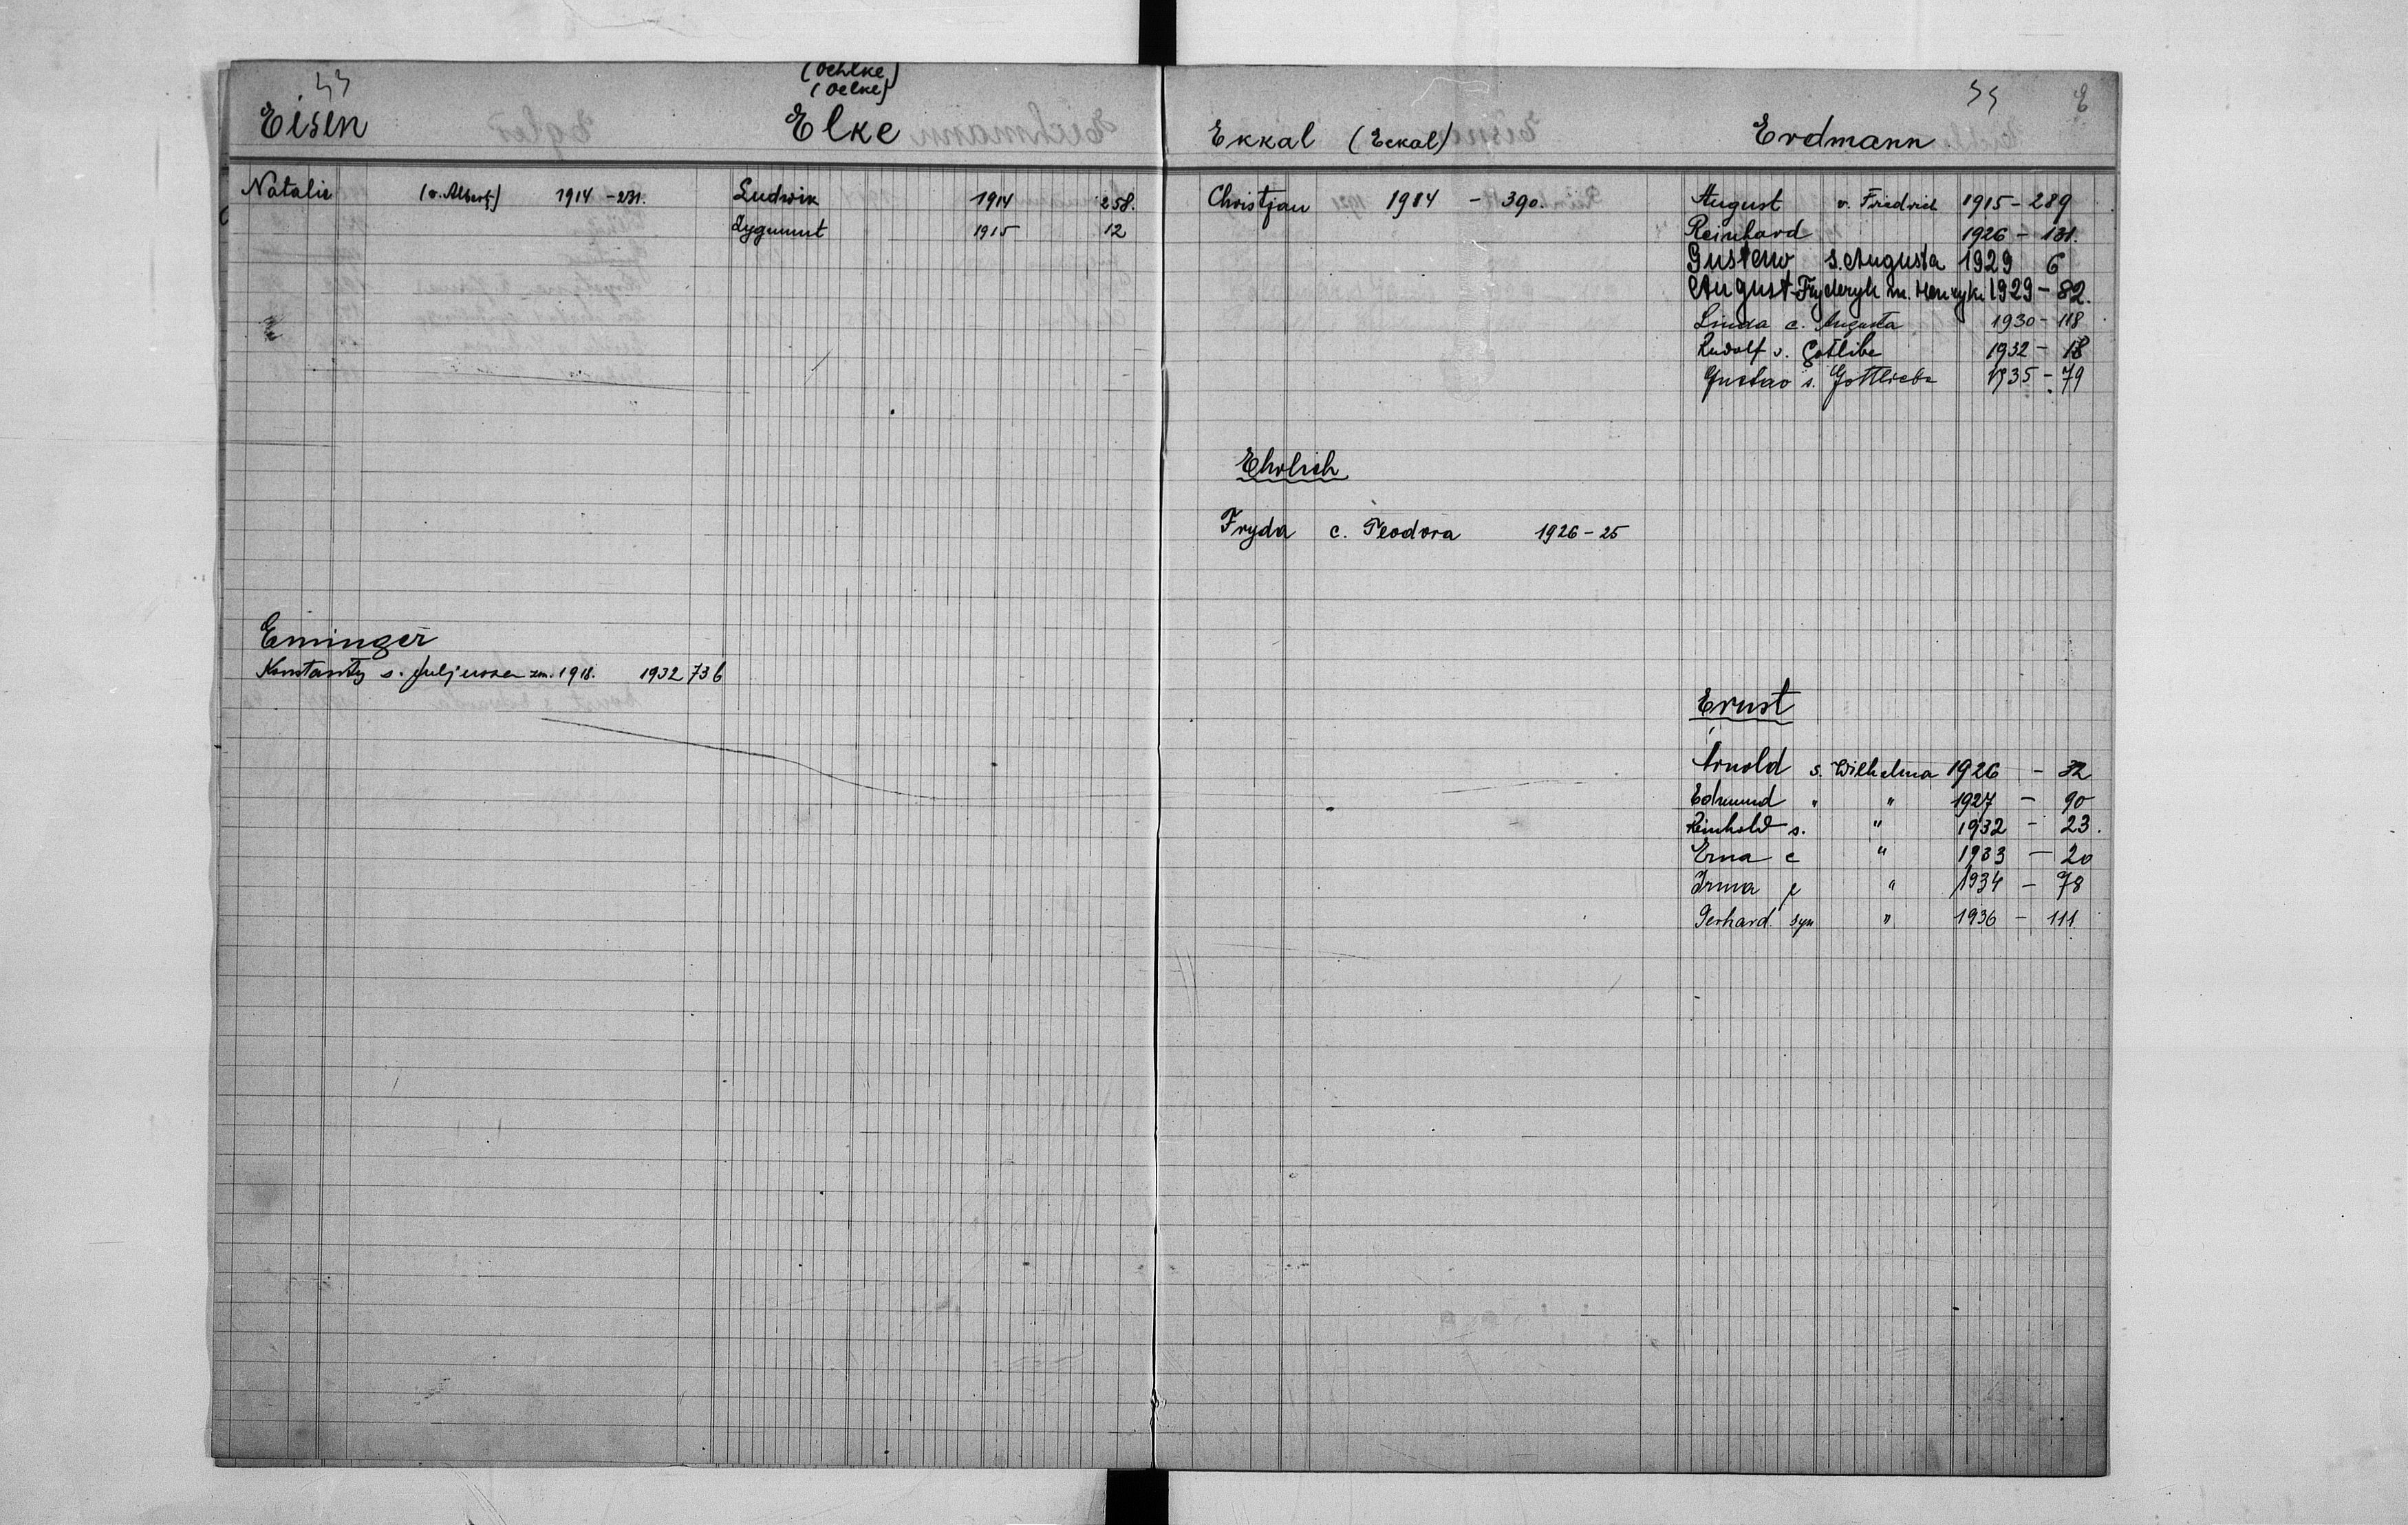 Eisen
Natalie (v. Albert) 1914 - 231.
Eminger
Konstanty s. Juljusza zm. 1918. 1932 736
(Oehlke)
(Oelke)
Elke
Ludwik 1914 258.
Zygmunt 1915 12
Ekkal (Eckal)
Christjan 1914 - 390.
Ehrlich
Fryda c. Teodora 1926 - 25
E
Erdmann
August v. Friedrich 1915 - 289
Reinhard 1926 - 131.
Gustaw s. Augusta 1929 6
August-Fryderyk 1929 - 82.
Linda c. Augusta 1930 - 118
Rudolf s. Gotliba 1932 - 18
Gustav s. Gottlieba 1935 - 79
Ernst
Arnold s. Wilhelma 1926 - 32
Edmund " " 1927 - 90
Reinhold s. " 1932 - 23.
Erna c " 1933 - 20
Irma c " 1934 - 78
Gerhard syn " 1936 - 111